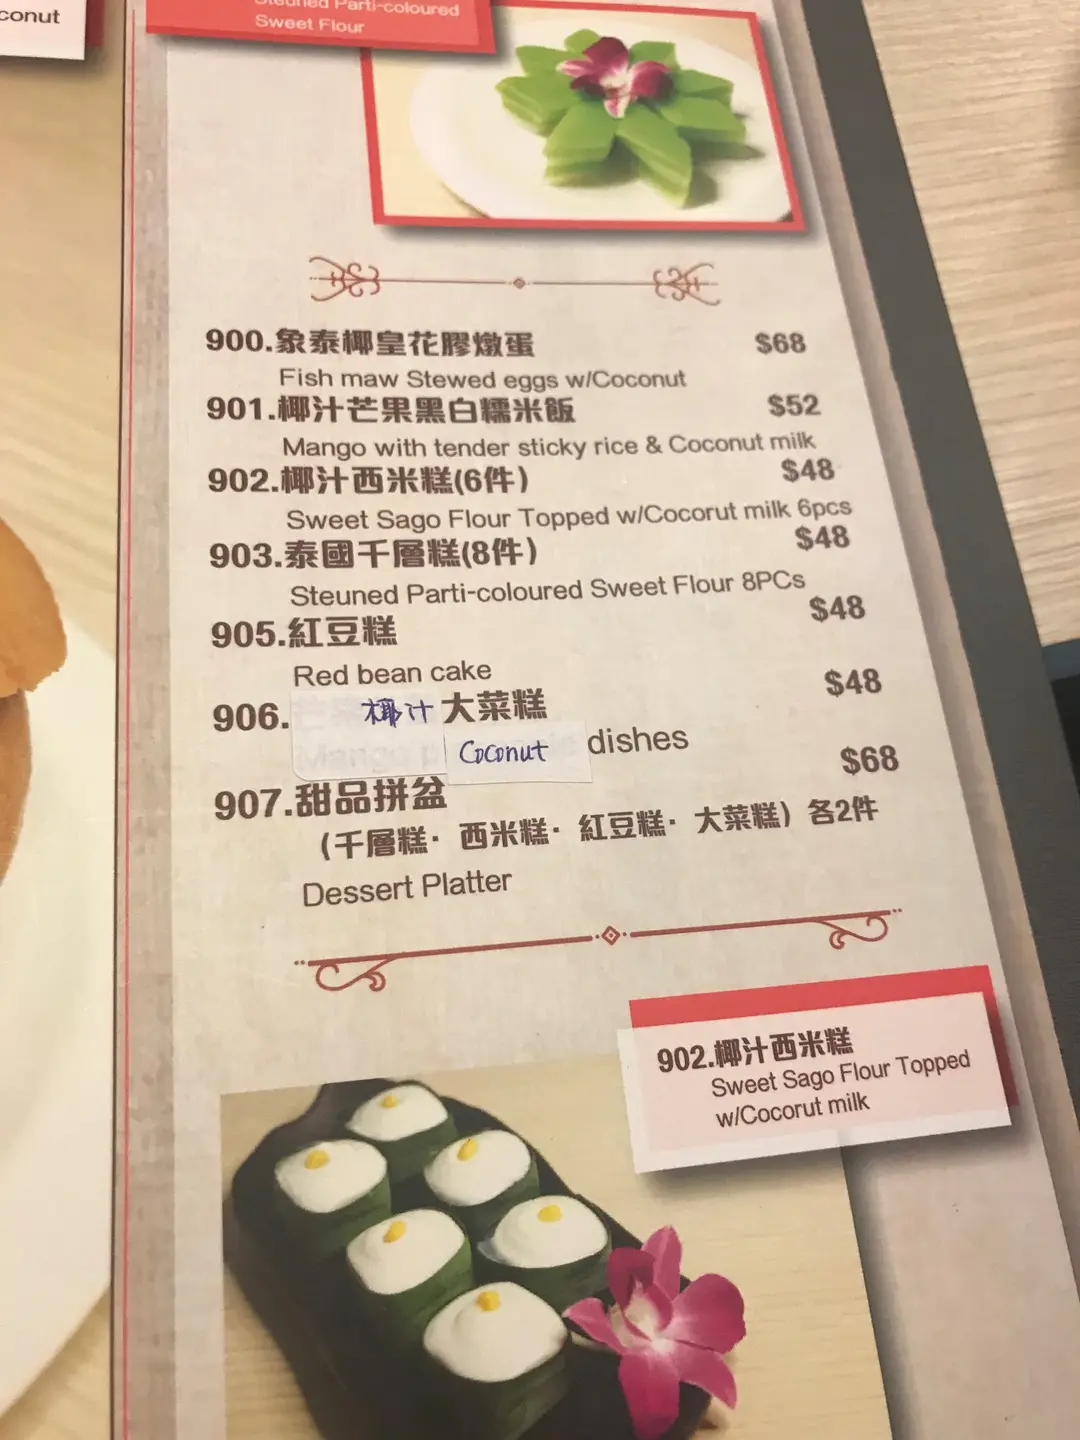 conut
Steuned Parti-coloured
Sweet Flour
900.象泰椰皇花膠燉蛋 $68
Fish maw Stewed eggs w/Coconut
901.椰汁芒果黑白糯米飯 $52
Mango with tender sticky rice & Coconut milk
902.椰汁西米糕(6件) $48
Sweet Sago Flour Topped w/Cocorut milk 6pcs
903.泰國千層糕(8件) $48
Steuned Parti-coloured Sweet Flour 8PCs
905.紅豆糕 $48
Red bean cake
906. 椰汁 大菜糕 $48
Coconut dishes
907.甜品拼盆 $68
(千層糕· 西米糕· 紅豆糕· 大菜糕) 各2件
Dessert Platter
902.椰汁西米糕
Sweet Sago Flour Topped
w/Cocorut milk